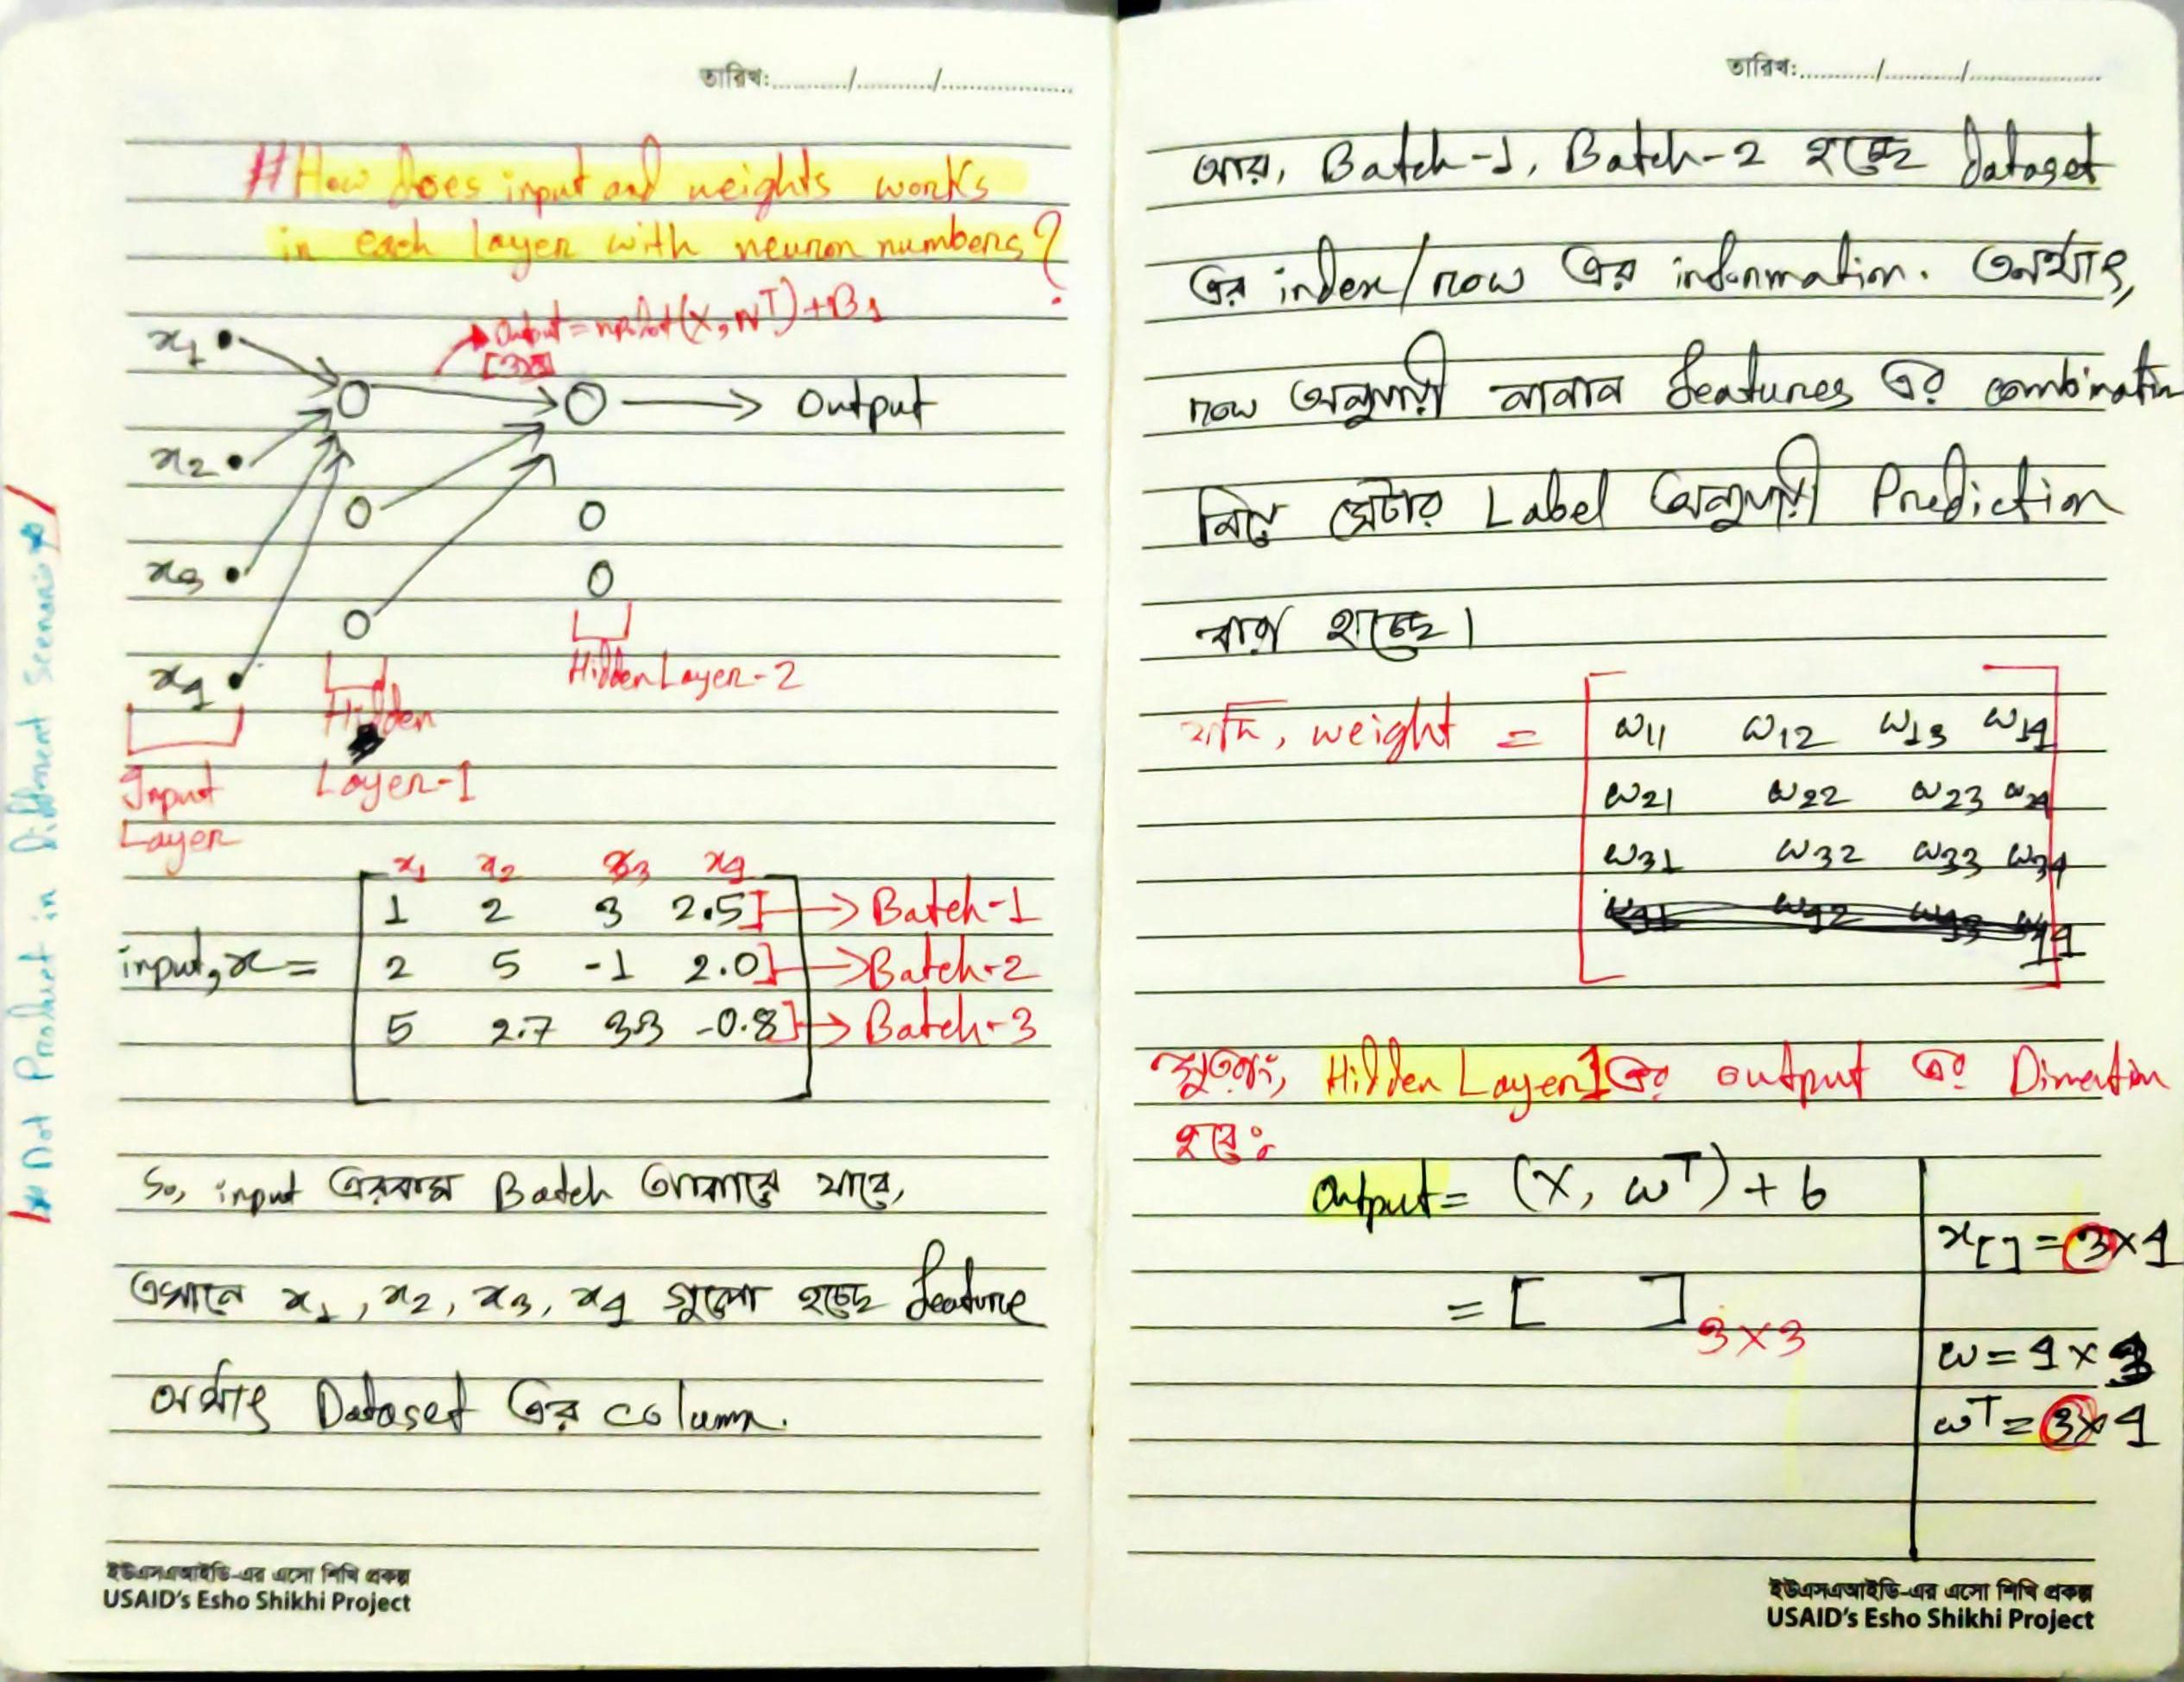 তারিখ:........../........../....................
#How does input and weights works
in each Layer with neuron numbers?
Output = np.dot(X, W^T) + B1
x1
Output
x2
x3
x4
Hidden Layer-2
Hidden
Layer-1
Input
Layer
x1 x2 x3 x4
1 2 3 2.5] → Batch-1
input, x = 2 5 -1 2.0] → Batch-2
5 2.7 3.3 -0.8] → Batch-3
So, input এরকম Batch আকারে যাবে,
এখানে x1, x2, x3, x4 গুলো হচ্ছে feature
অর্থাৎ Dataset এর column.
ইউএসএআইডি-এর এসো শিখি প্রকল্প
USAID's Esho Shikhi Project
Dot Product in Different Scenario
তারিখ:........../........../....................
আর, Batch-1, Batch-2 হচ্ছে dataset
এর index/row এর information. অর্থাৎ,
row অনুযায়ী নানান features এর combination
নিয়ে সেটার Label অনুযায়ী Prediction
করা হচ্ছে।
যদি, weight = w11 w12 w13 w14
w21 w22 w23 w24
w31 w32 w33 w34
সুতরাং, Hidden Layer 1 এর output এর Dimention
হবে:
Output = (X, w^T) + b
= [ ] 3×3
x[] = 3×4
w = 4×3
w^T = 3×4
ইউএসএআইডি-এর এসো শিখি প্রকল্প
USAID's Esho Shikhi Project